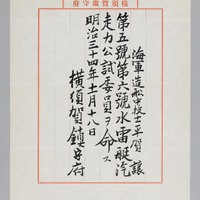 横須賀鎮守府
海軍造船中技士平賀 譲
第五號第六號水雷艇汽
走力公試委員ヲ命ス
明治三十四年十一月十八日
横須賀鎮守府